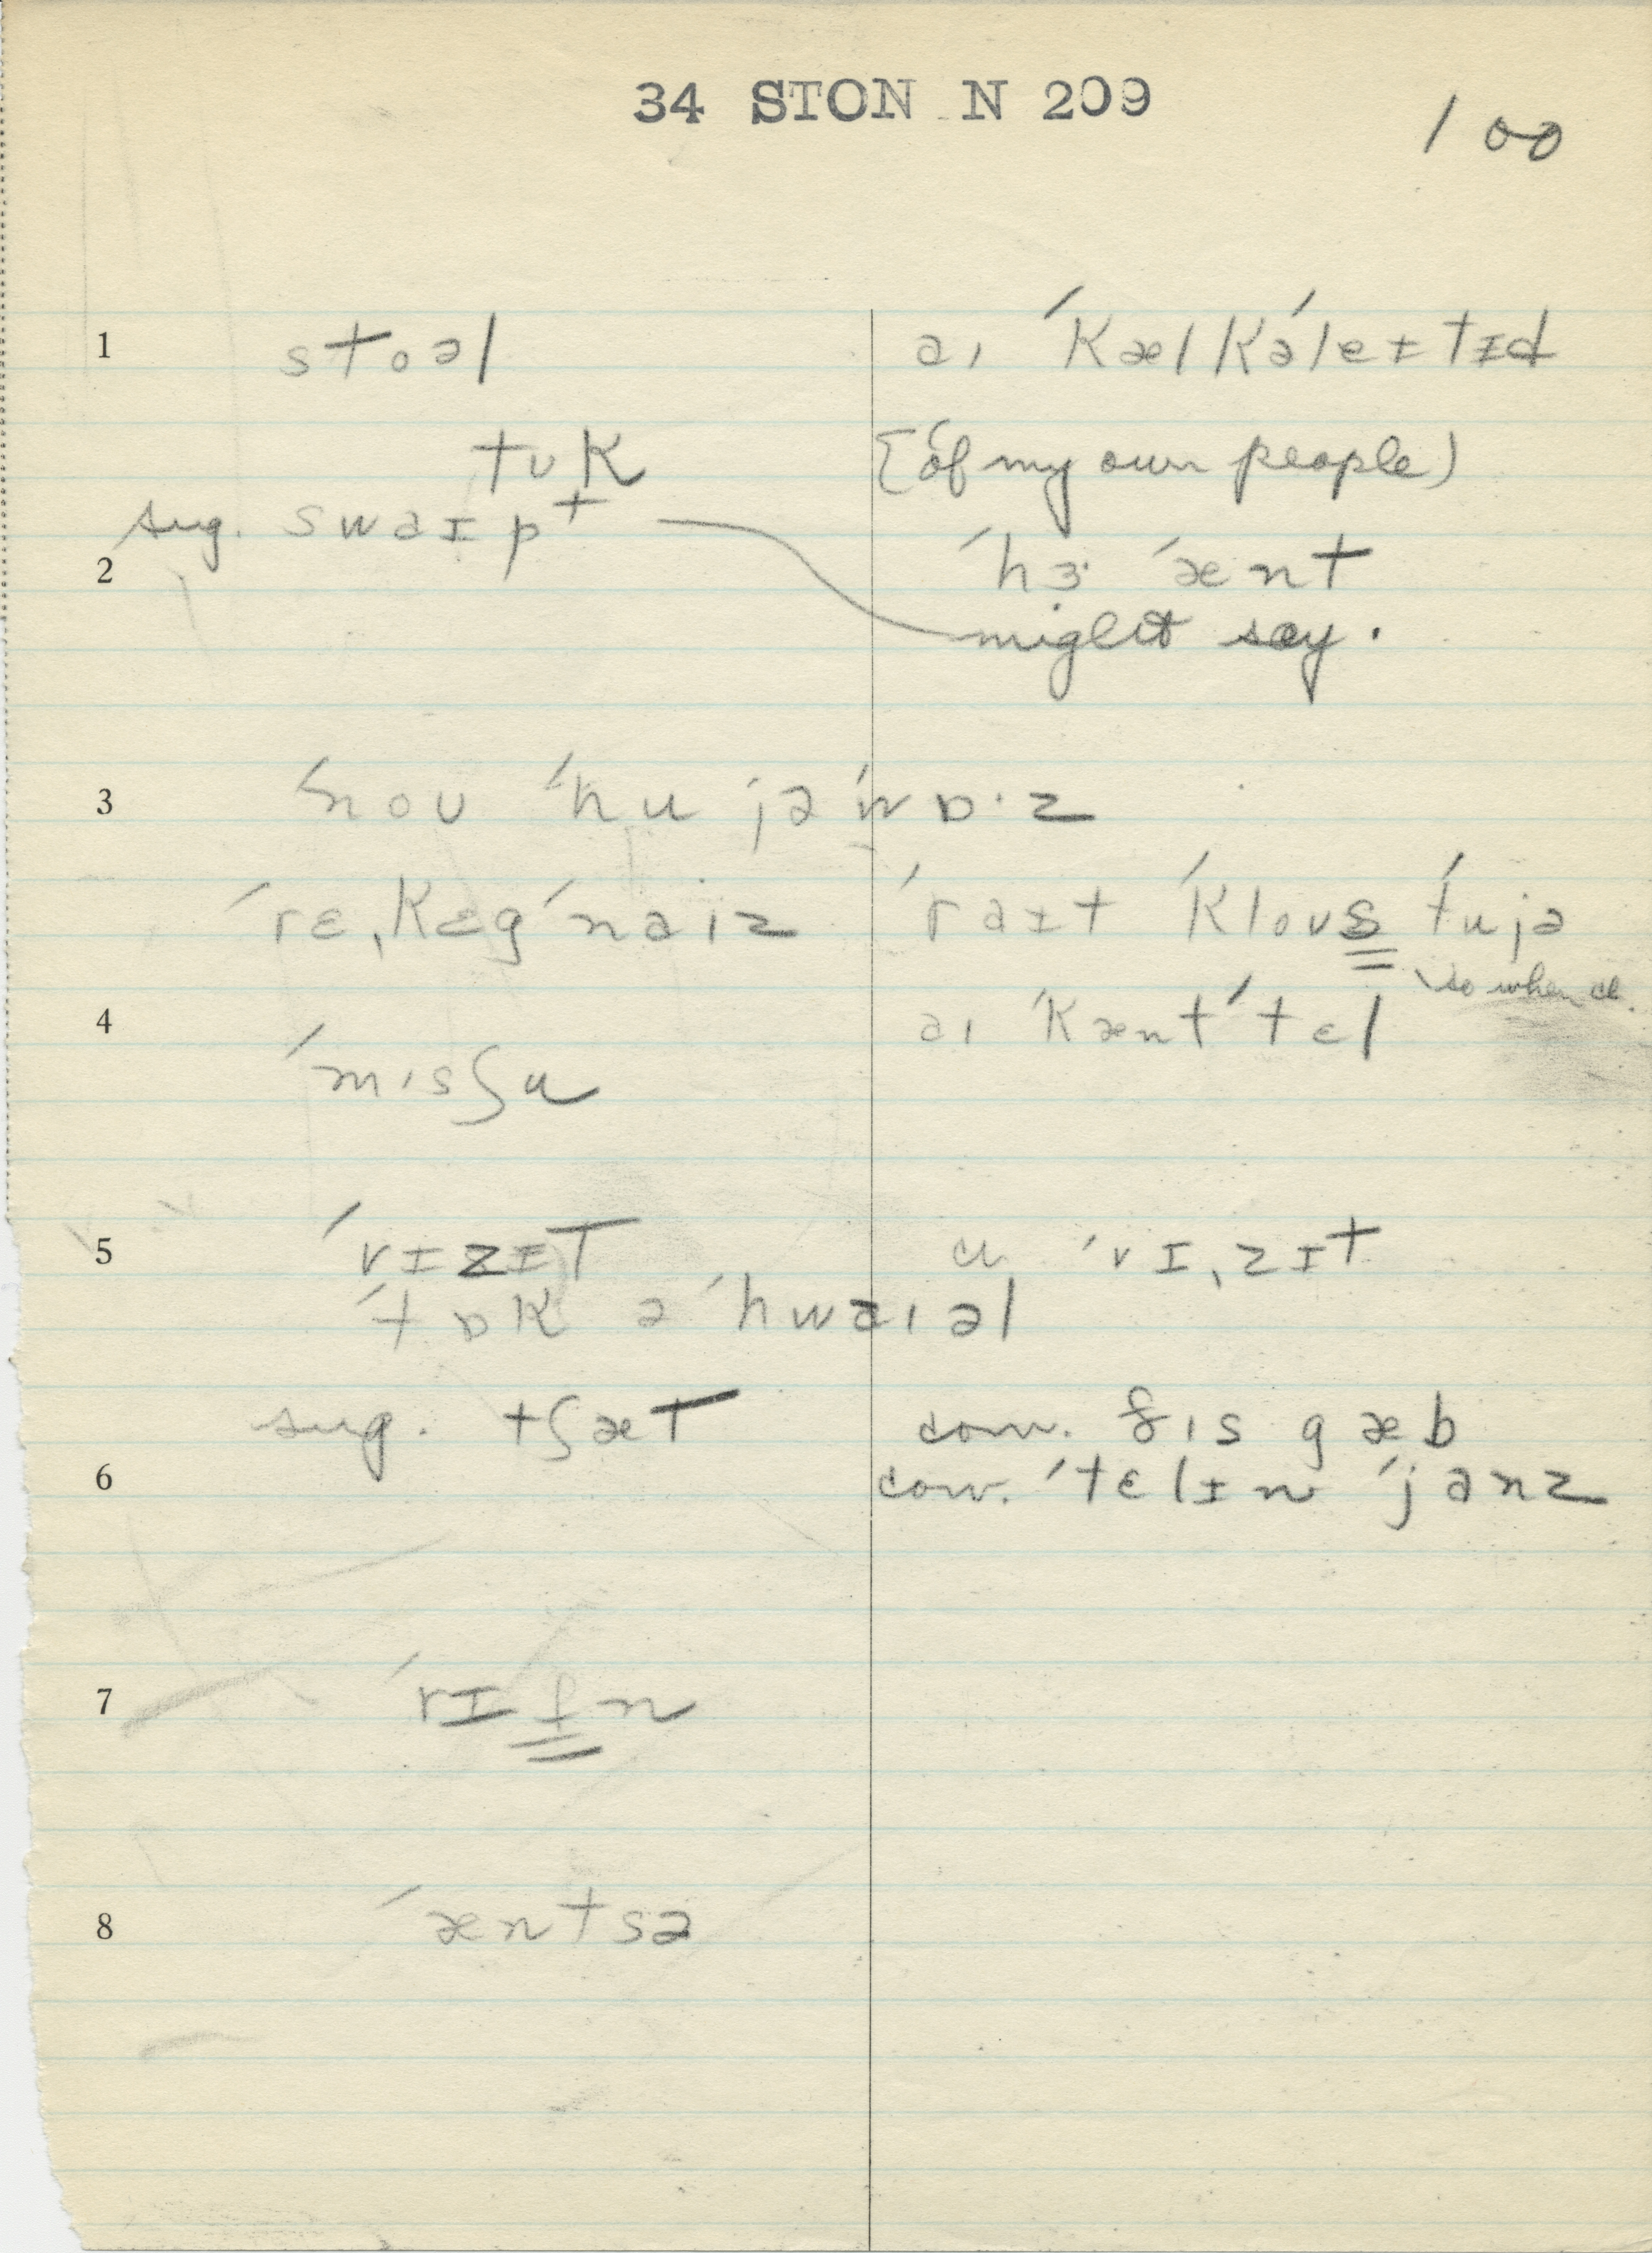 34 STON N 209
100
1 stoəl aɪ ˈkælkəˈleɪtɪd
tʊk (of my own people)
sug. swaɪpt
2 ˈhɜ· ˈænt
might say.
3 ˈnoʊ ˈhu jə ˈwɒ·z
ˈrɛˌkɛgˈnaɪz ˈraɪt ˈkloʊs ˈtujə
so when ɑɪ
4 aɪ ˈkæntˈtɛl
ˈmɪsʃu
5 ˈvɪzɪt ɑ ˈvɪˌzɪt
ˈtɒk ə ˈhwaɪəl
sug. tʃæt conv. ðɪs gæb
6 conv. ˈtɛlɪn ˈjanz
7 ˈrɪfn
8 ˈæntsə